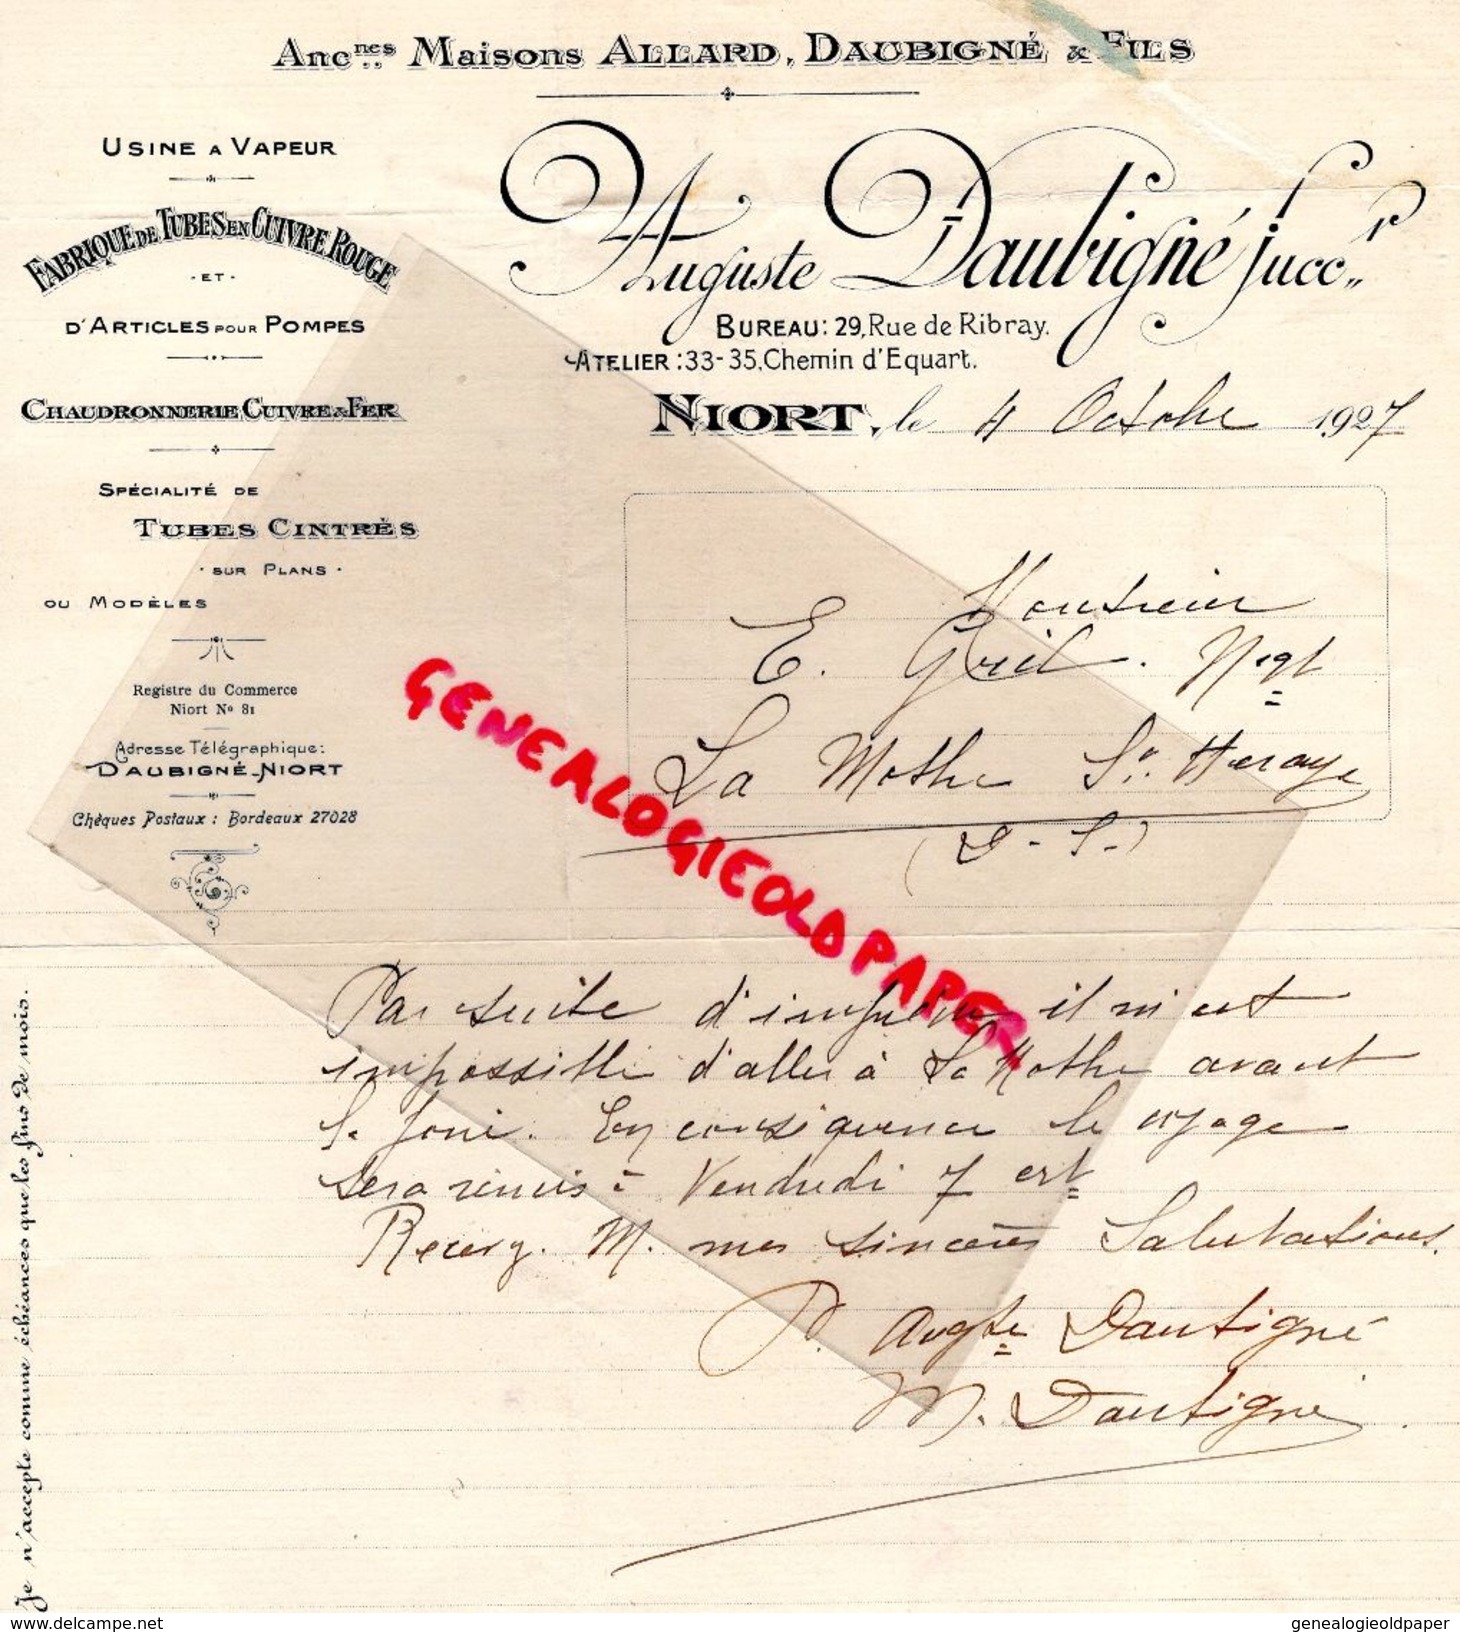 Anc.nes Maisons Allard, Daubigné & Fils
Usine a Vapeur
Fabrique de Tubes en Cuivre Rouge
- et -
d'Articles pour Pompes
Chaudronnerie Cuivre & Fer
Spécialité de
Tubes Cintrés
· sur Plans ·
ou Modèles
Registre du Commerce
Niort No 81
Adresse Télégraphique:
Daubigné-Niort
Chèques Postaux : Bordeaux 27028
Auguste Daubigné Succ.r
Bureau: 29, Rue de Ribray.
Atelier : 33-35, Chemin d'Equart.
Niort, le 4 Octobre 1927
Monsieur
E. Gril. Negt
La Mothe St. Heraye
(D.-S.)
Par suite d'imprévu il m'est
impossible d'aller à La Mothe avant
En consequence le voyage
sera remis à Vendredi 7 crt
Recevez M. mes sincères Salutations.
P. Augte Daubigné
M. Daubigné
Je n'accepte comme échéances que les fins de mois.
GENEALOGIEOLDPAPER
www.delcampe.net
genealogieoldpaper